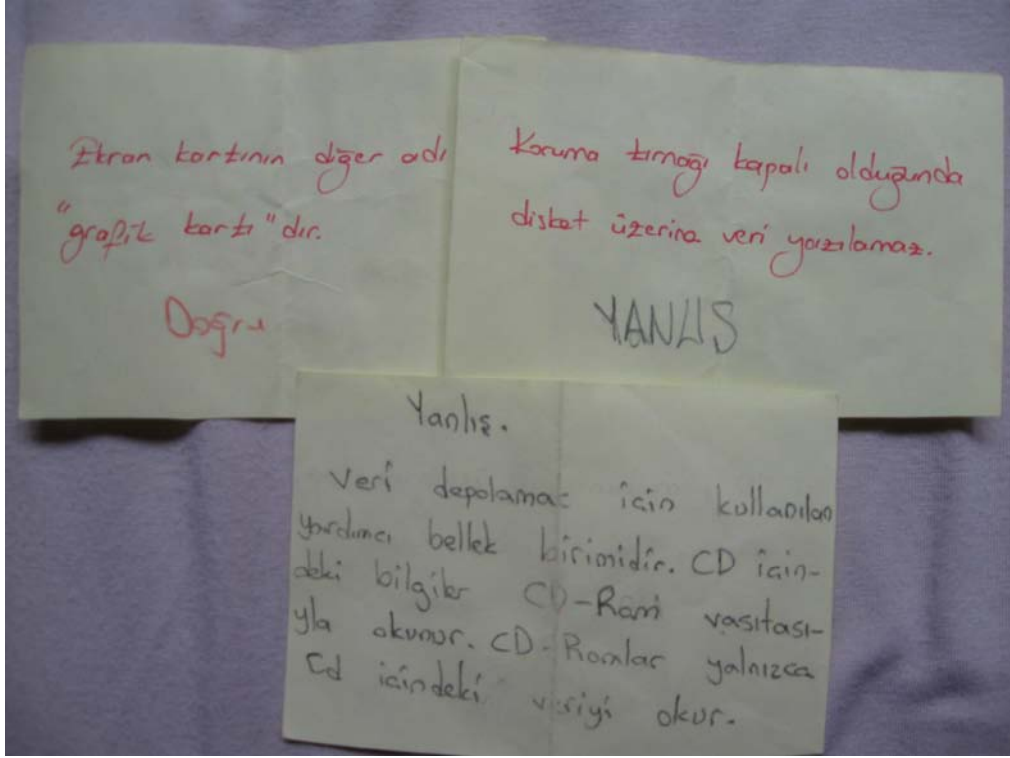 Ekran kartının diğer adı
"grafik kartı"dır.
Doğru
Koruma tırnağı kapalı olduğunda
disket üzerine veri yazılamaz.
YANLIŞ
Yanlış.
Veri depolamak için kullanılan
yardımcı bellek birimidir. CD için-
deki bilgiler CD-Rom vasıtası-
yla okunur. CD-Romlar yalnızca
Cd içindeki veriyi okur.